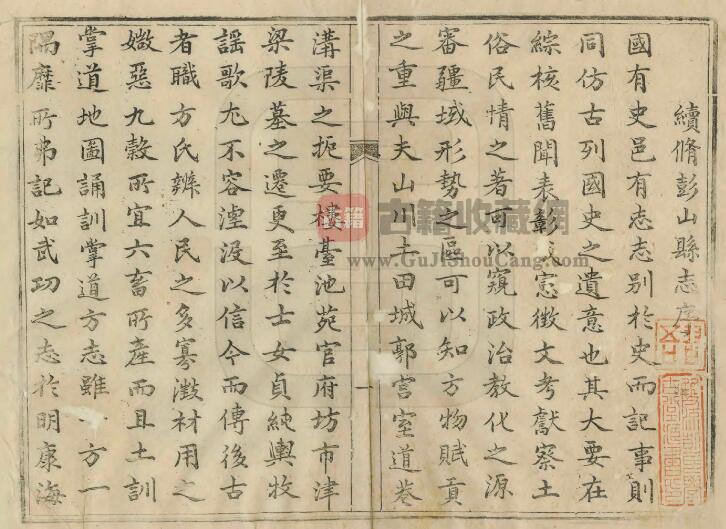 續脩彭山縣志序
國有史邑有志志別於史而記事則
同仿古列國史之遺意也其大要在
綜核舊聞表彰憲徵文考獻察土
俗民情之著可以窺政治教化之源
審疆域形勢之區可以知方物賦貢
之重與夫山川土田城郭宮室道巷
溝渠之扼要樓臺池苑官府坊市津
梁陵墓之遷更至於士女貞純輿牧
謠歌尢不容湮沒以信今而傳後古
者職方氏辨人民之多寡澂材用之
媺惡九穀所宜六畜所產而且土訓
掌道地圖誦訓掌道方志雖一方一
隅靡所弗記如武功之志於明康海
一
古籍
古籍收藏網
www.GuJiShouCang.com